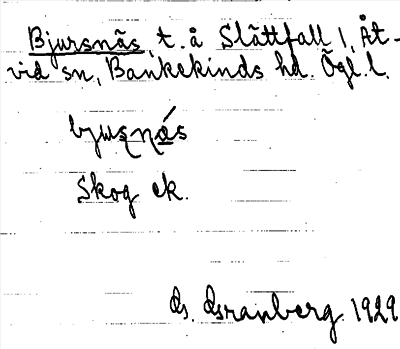 Bjursnäs, t. å Slättfall 1, Åt-
vid sn, Bankekinds hd. Ögl. l.
bjusnás
Skog ek.
1929